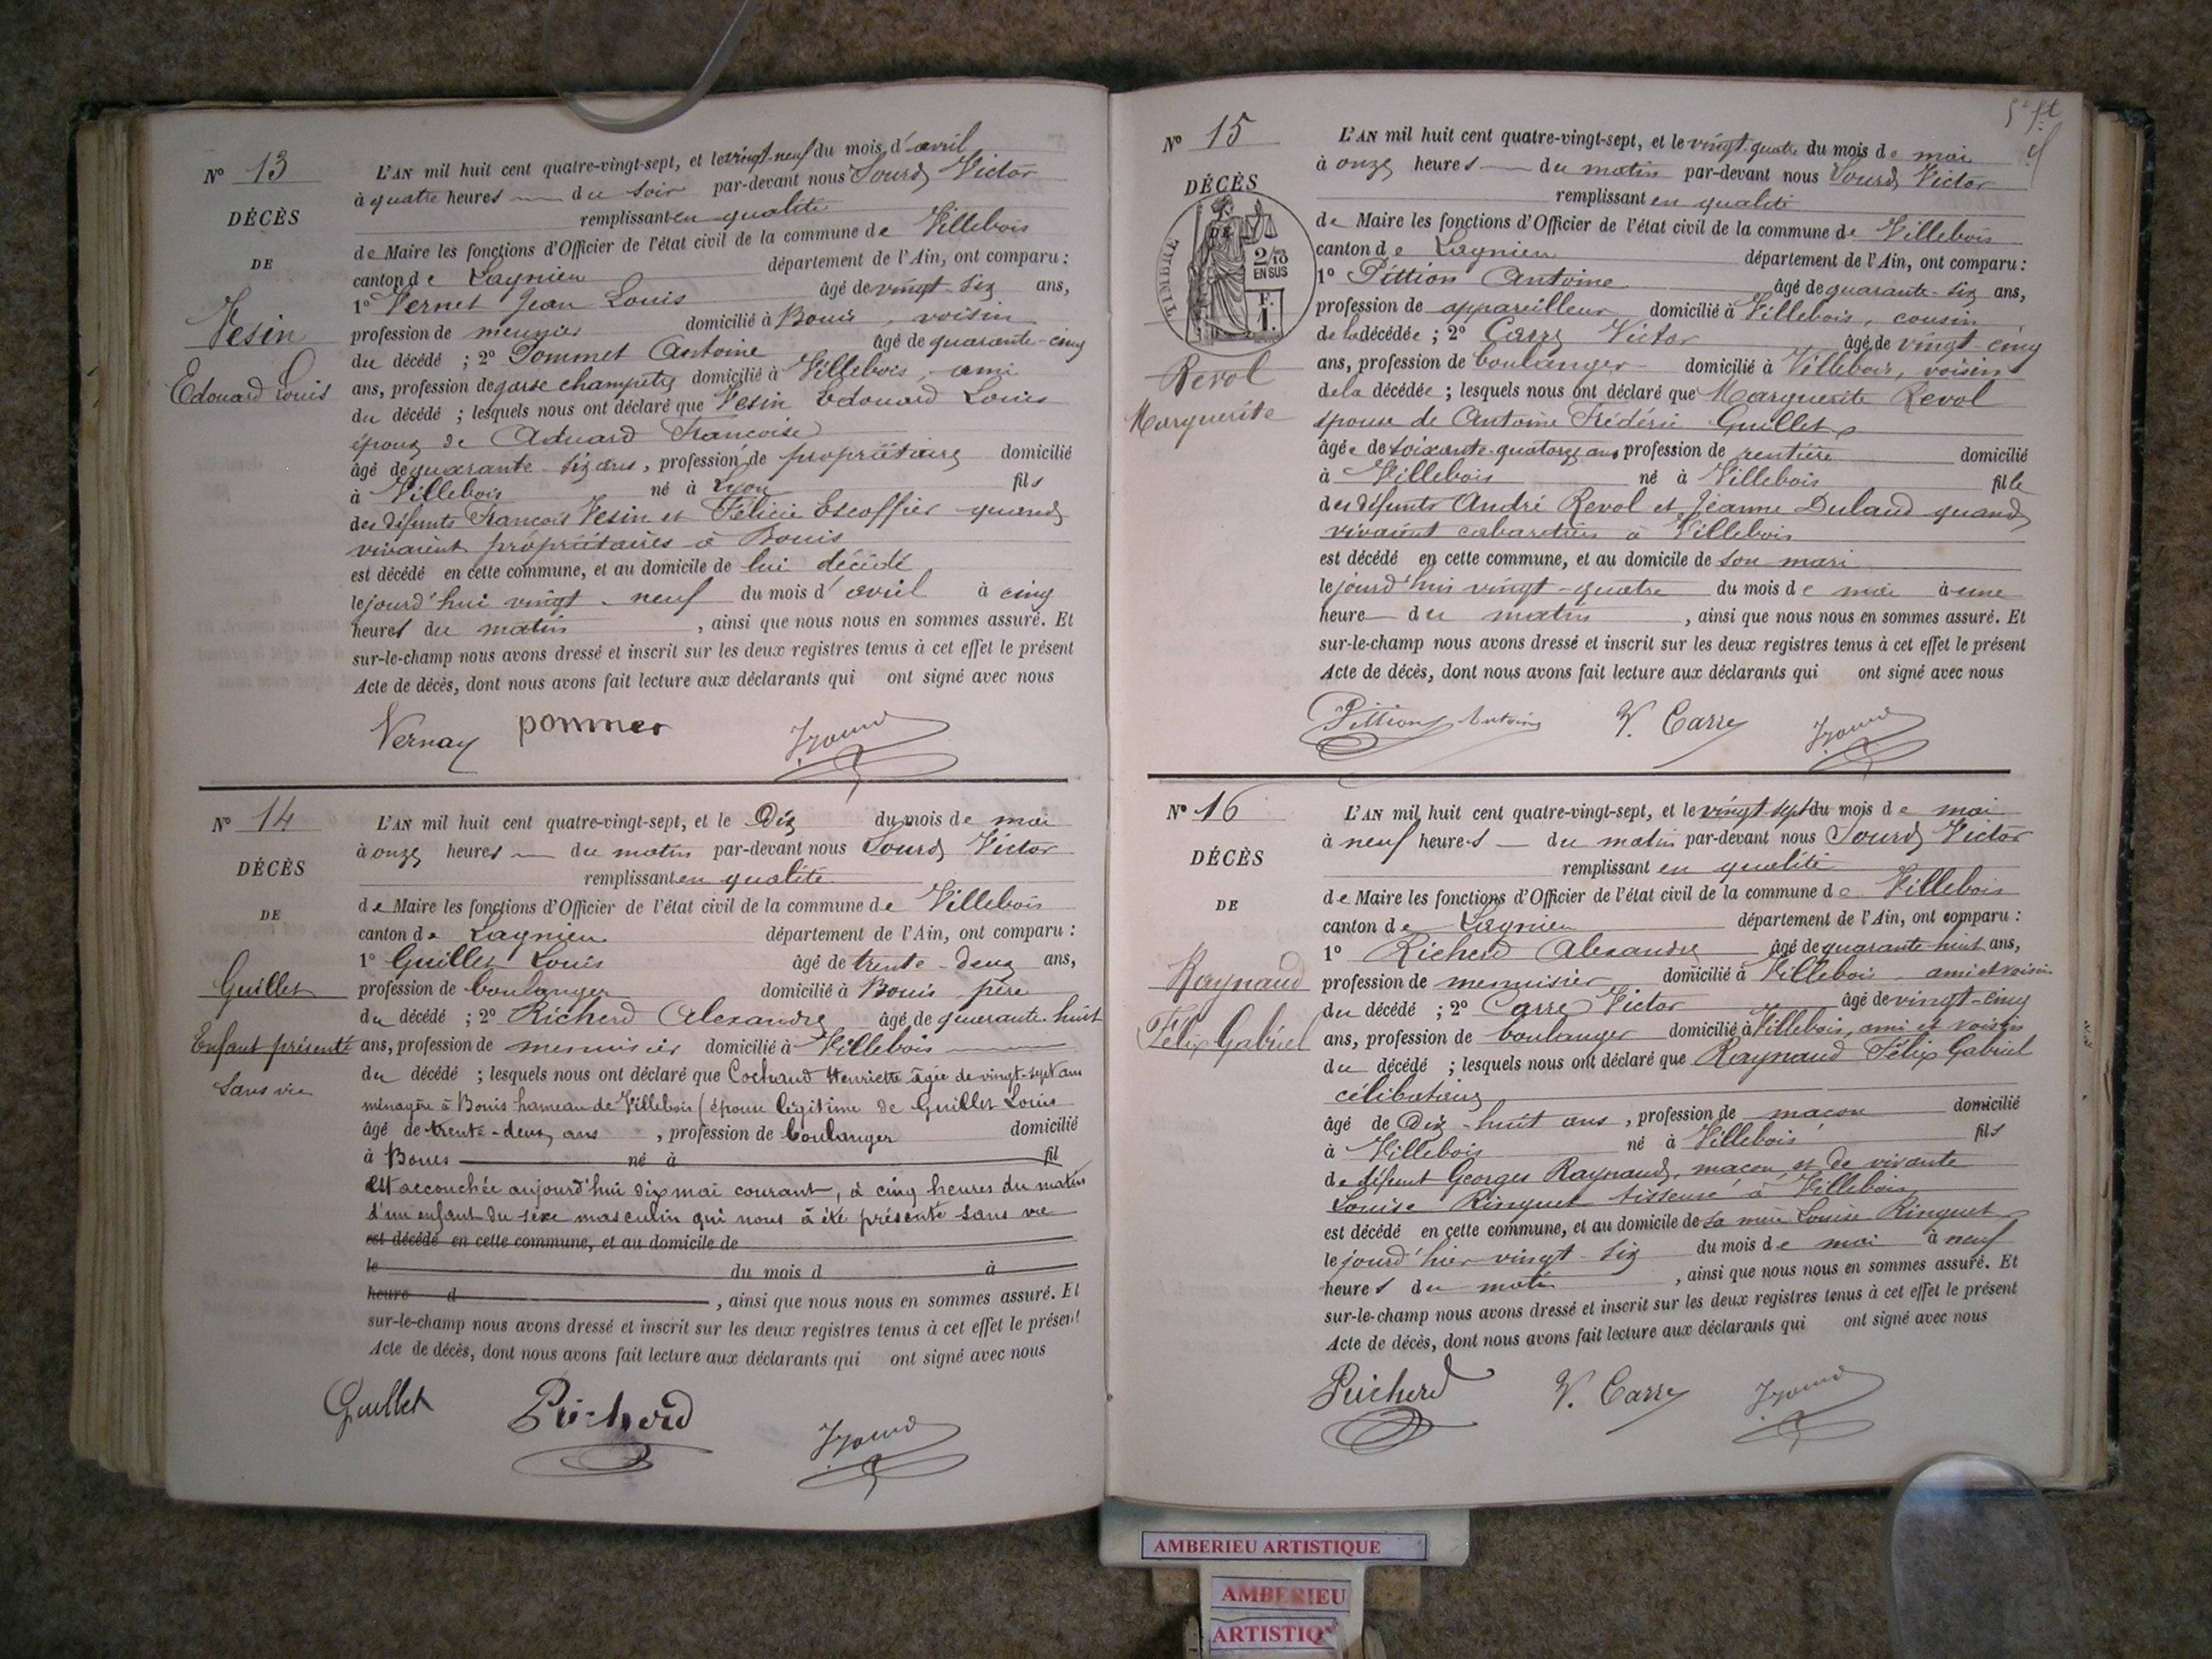 N° 13
DÉCÈS
DE
Vesin
Edouard Louis
L'AN mil huit cent quatre-vingt-sept, et le vingt-neuf du mois d'avril
à quatre heures du soir par-devant nous Sourd Victor
remplissant en qualité
de Maire les fonctions d'Officier de l'état civil de la commune de Villebois
canton de Lagnieu département de l'Ain, ont comparu :
1° Vernet Jean Louis âgé de vingt-six ans,
profession de meunier domicilié à Bouis, voisin
du décédé ; 2° Pommet Antoine âgé de quarante-cinq
ans, profession de garde champetre domicilié à Villebois, ami
du décédé ; lesquels nous ont déclaré que Vesin Edouard Louis
époux de Françoise
âgé de quarante-six ans, profession de propriétaire domicilié
à Villebois né à Lyon fils
des défunts François Vesin et Félicie Escoffier quand
vivaient propriétaires à Bouis
est décédé en cette commune, et au domicile de lui décédé
le jourd'hui vingt-neuf du mois d'avril à cinq
heures du matin , ainsi que nous nous en sommes assuré. Et
sur-le-champ nous avons dressé et inscrit sur les deux registres tenus à cet effet le présent
Acte de décès, dont nous avons fait lecture aux déclarants qui ont signé avec nous
Vernay pommer
N° 14
DÉCÈS
DE
Guillet
Enfant présenté
Sans vie
L'AN mil huit cent quatre-vingt-sept, et le Dix du mois de mai
à onze heures du matin par-devant nous Sourd Victor
remplissant en qualité
de Maire les fonctions d'Officier de l'état civil de la commune de Villebois
canton de Lagnieu département de l'Ain, ont comparu :
1° Guillet Louis âgé de trente-deux ans,
profession de boulanger domicilié à Bouis père
du décédé ; 2° Richerd Alexandre âgé de quarante-huit
ans, profession de menuisier domicilié à Villebois
du décédé ; lesquels nous ont déclaré que Cochaud Henriette âgée de vingt-sept ans
ménagère à Bouis hameau de Villebois (épouse légitime de Guillet Louis
âgé de trente-deux ans , profession de boulanger domicilié
à Bouis né à fil
est accouchée aujourd'hui dix mai courant, à cinq heures du matin
d'un enfant du sexe masculin qui nous à été présenté sans vie
est décédé en cette commune, et au domicile de
le du mois d à
heure d , ainsi que nous nous en sommes assuré. Et
sur-le-champ nous avons dressé et inscrit sur les deux registres tenus à cet effet le présent
Acte de décès, dont nous avons fait lecture aux déclarants qui ont signé avec nous
Guillet Richerd
N° 15
DÉCÈS
TIMBRE
2/10
EN SUS
F.
1.
Revol
Marguerite
L'AN mil huit cent quatre-vingt-sept, et le vingt-quatre du mois de mai
à onze heures du matin par-devant nous Sourd Victor
remplissant en qualité
de Maire les fonctions d'Officier de l'état civil de la commune de Villebois
canton de Lagnieu département de l'Ain, ont comparu :
1° Pittion Antoine âgé de quarante-six ans,
profession de appareilleur domicilié à Villebois, cousin
de la décédée ; 2° Carre Victor âgé de vingt-cinq
ans, profession de boulanger domicilié à Villebois, voisin
de la décédée ; lesquels nous ont déclaré que Marguerite Revol
épouse de Antoine Frédéric Guillet
âgée de soixante-quatorze ans profession de rentière domicilié
à Villebois né à Villebois fille
des défunts André Revol et Jeanne Dulaud quand
vivaient cabaretiers à Villebois
est décédé en cette commune, et au domicile de son mari
le jourd'hui vingt-quatre du mois de mai à une
heure du matin , ainsi que nous nous en sommes assuré. Et
sur-le-champ nous avons dressé et inscrit sur les deux registres tenus à cet effet le présent
Acte de décès, dont nous avons fait lecture aux déclarants qui ont signé avec nous
Pittion Antoine V. Carre
N° 16
DÉCÈS
DE
Raynaud
Félix Gabriel
L'AN mil huit cent quatre-vingt-sept, et le vingt-sept du mois de mai
à neuf heures du matin par-devant nous Sourd Victor
remplissant en qualité
de Maire les fonctions d'Officier de l'état civil de la commune de Villebois
canton de Lagnieu département de l'Ain, ont comparu :
1° Richerd Alexandre âgé de quarante-huit ans,
profession de menuisier domicilié à Villebois ami et voisin
du décédé ; 2° Carre Victor âgé de vingt-cinq
ans, profession de boulanger domicilié à Villebois, ami et voisin
du décédé ; lesquels nous ont déclaré que Raynaud Félix Gabriel
célibataire
âgé de Dix-huit ans , profession de maçon domicilié
à Villebois né à Villebois fils
de défunt Georges Raynaud, maçon et de vivante
Louise Ringuet tisseuse à Villebois
est décédé en cette commune, et au domicile de sa mère Louise Ringuet
le jourd'hier vingt-six du mois de mai à neuf
heures du matin , ainsi que nous nous en sommes assuré. Et
sur-le-champ nous avons dressé et inscrit sur les deux registres tenus à cet effet le présent
Acte de décès, dont nous avons fait lecture aux déclarants qui ont signé avec nous
Richerd V. Carre
AMBERIEU ARTISTIQUE
AMBERIEU
ARTISTIQ